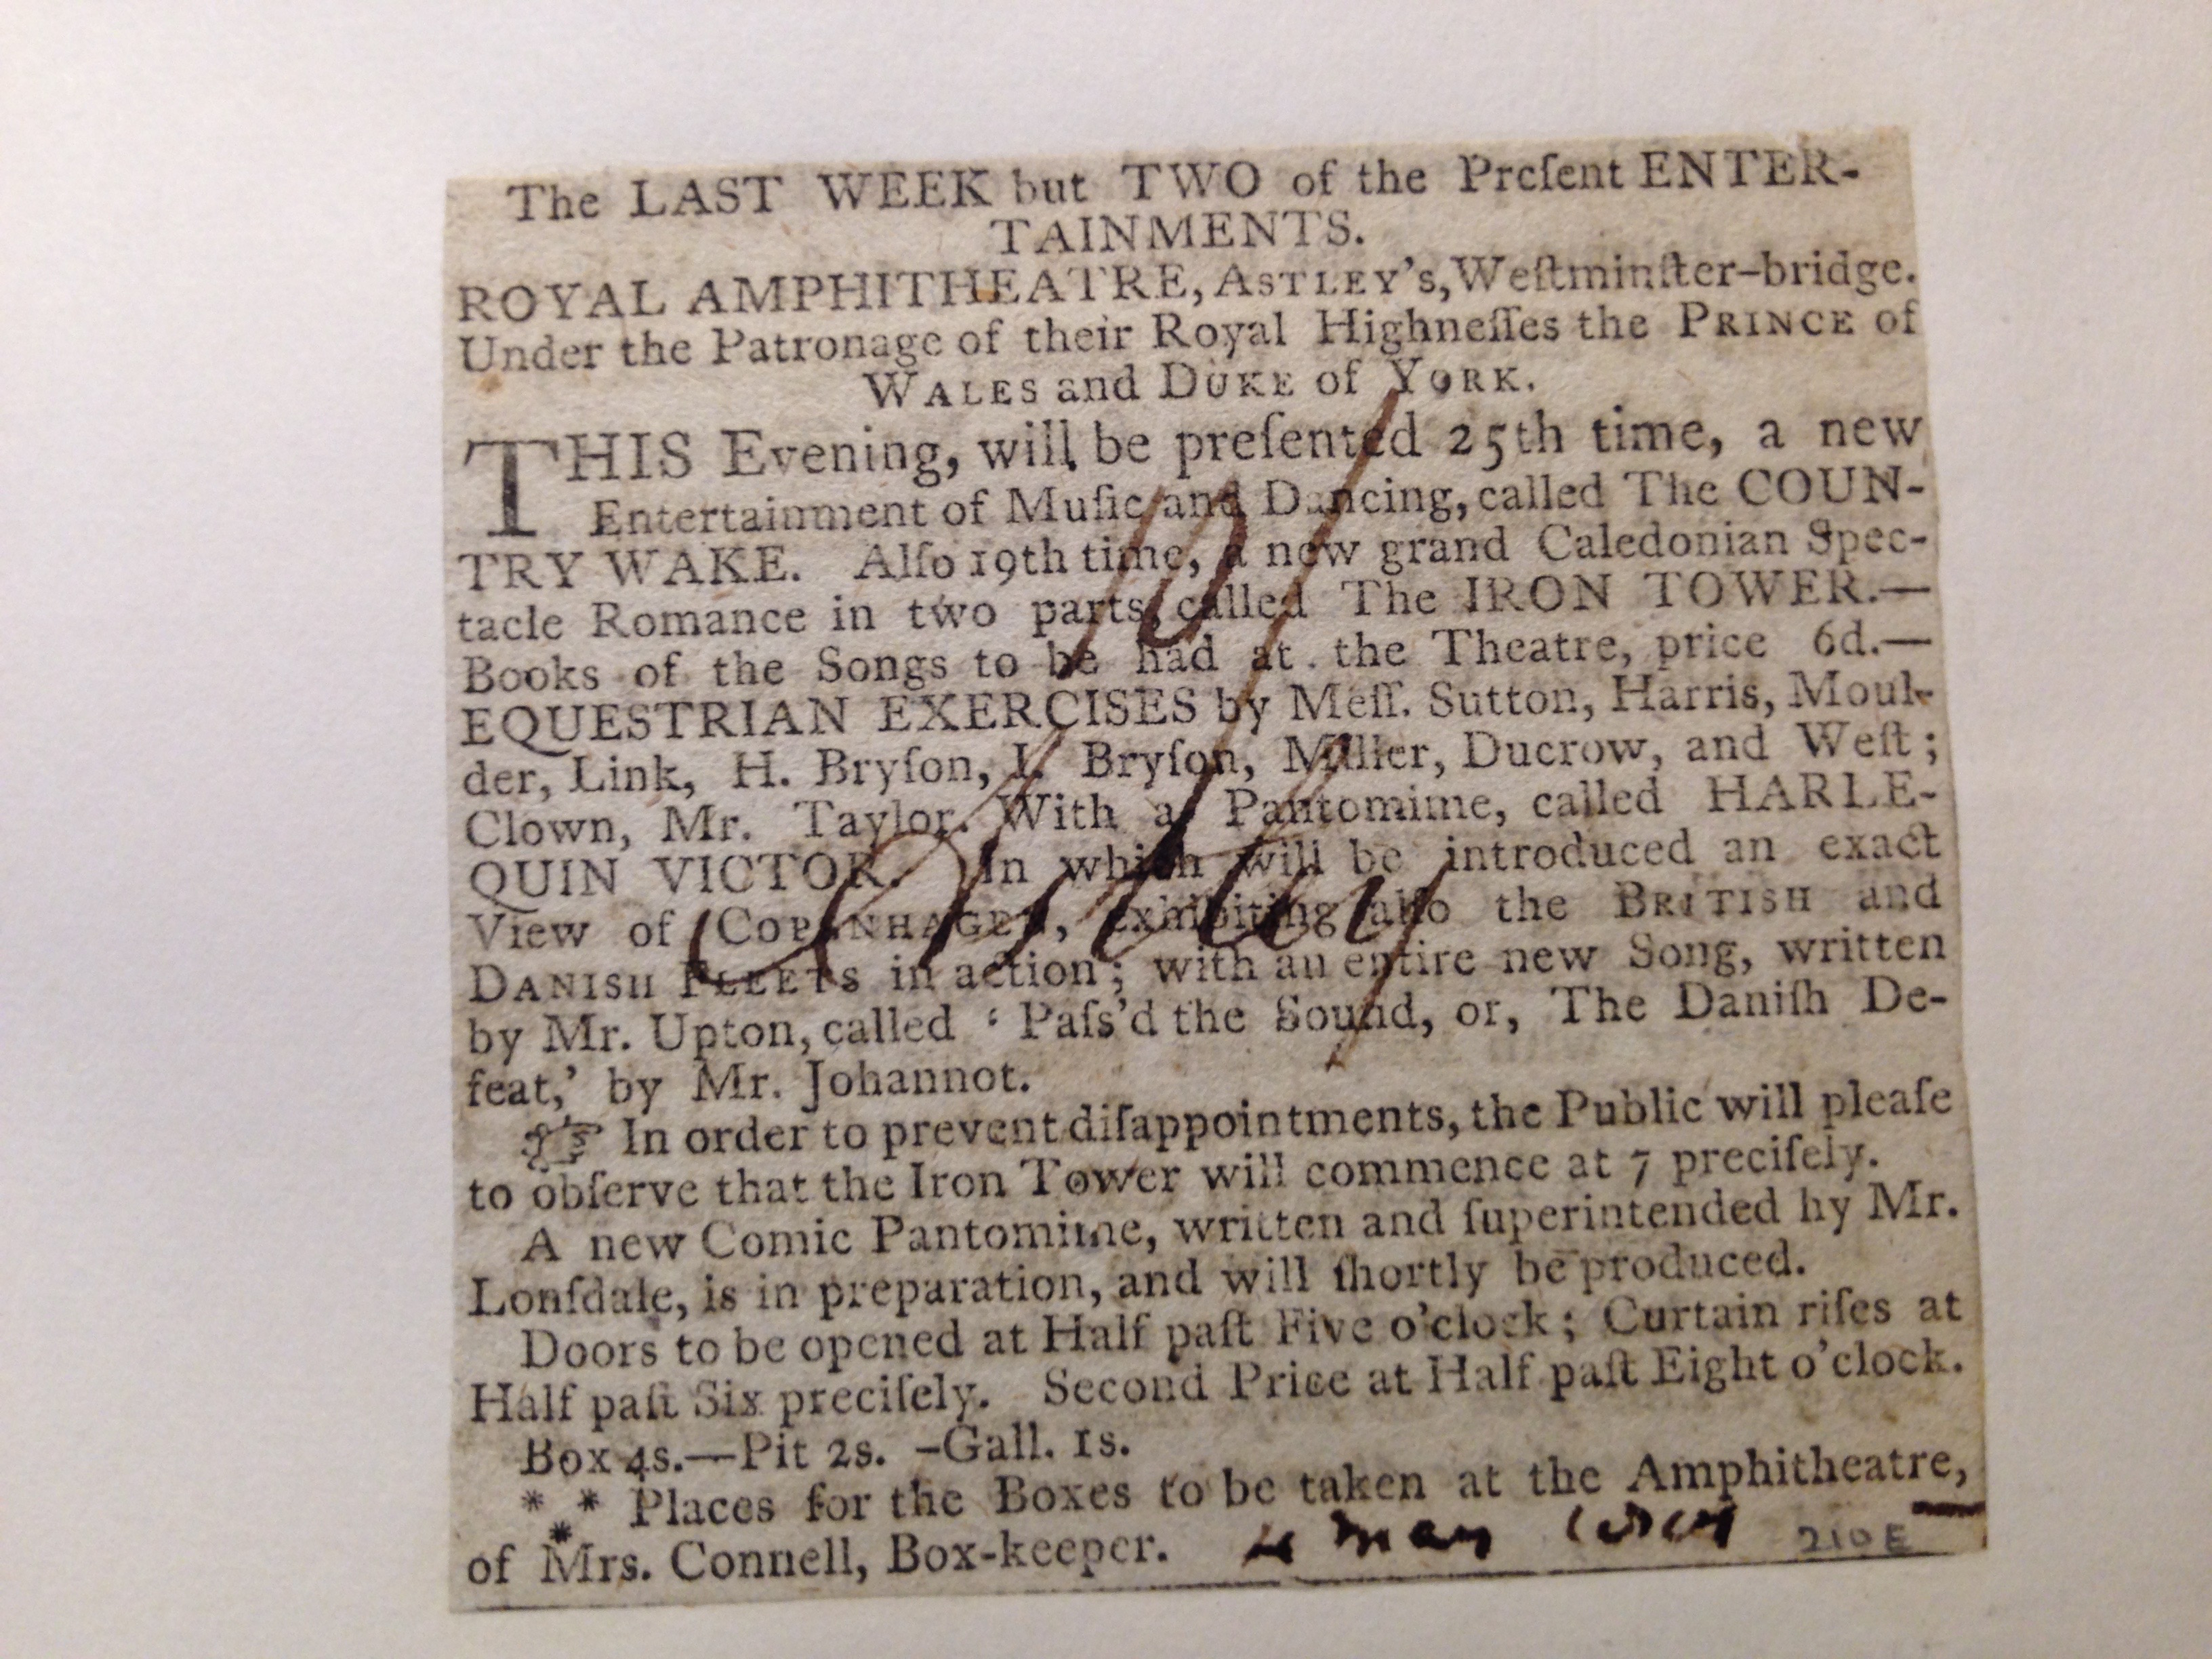 The LAST WEEK but TWO of the Preſent ENTER-
TAINMENTS.
ROYAL AMPHITHEATRE, ASTLEY'S, Weſtminſter-bridge.
Under the Patronage of their Royal Highneſſes the PRINCE of
WALES and DUKE of YORK.
THIS Evening, will be preſented 25th time, a new
Entertainment of Muſic and Dancing, called The COUN-
TRY WAKE. Alſo 19th time, a new grand Caledonian Spec-
tacle Romance in two parts, called The IRON TOWER.—
Books of the Songs to be had at the Theatre, price 6d.—
EQUESTRIAN EXERCISES by Meſſ. Sutton, Harris, Moul-
der, Link, H. Bryſon, I. Bryſon, Miller, Ducrow, and Weſt;
Clown, Mr. Taylor. With a Pantomime, called HARLE-
QUIN VICTOR. In which will be introduced an exact
View of COPENHAGEN, exhibiting alſo the BRITISH and
DANISH FLEETS in action; with an entire new Song, written
by Mr. Upton, called ‘ Paſs'd the Sound, or, The Daniſh De-
feat,' by Mr. Johannot.
☞ In order to prevent diſappointments, the Public will pleaſe
to obſerve that the Iron Tower will commence at 7 preciſely.
A new Comic Pantomime, written and ſuperintended hy Mr.
Lonſdale, is in preparation, and will ſhortly be produced.
Doors to be opened at Half paſt Five o'clock; Curtain riſes at
Half paſt Six preciſely. Second Price at Half paſt Eight o'clock.
Box 4s.—Pit 2s. –Gall. 1s.
*⁎* Places for the Boxes to be taken at the Amphitheatre,
of Mrs. Connell, Box-keeper. May
210E
Astley